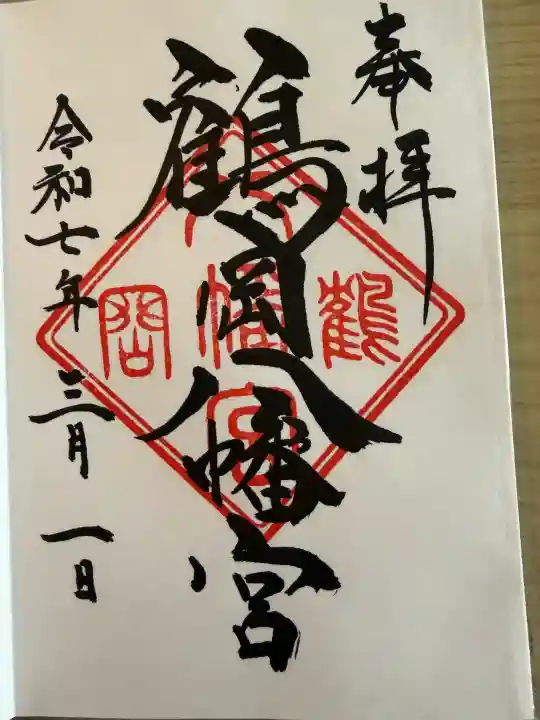 奉拝
鶴岡八幡宮
鶴
岡
八
幡
宮
令和七年三月一日